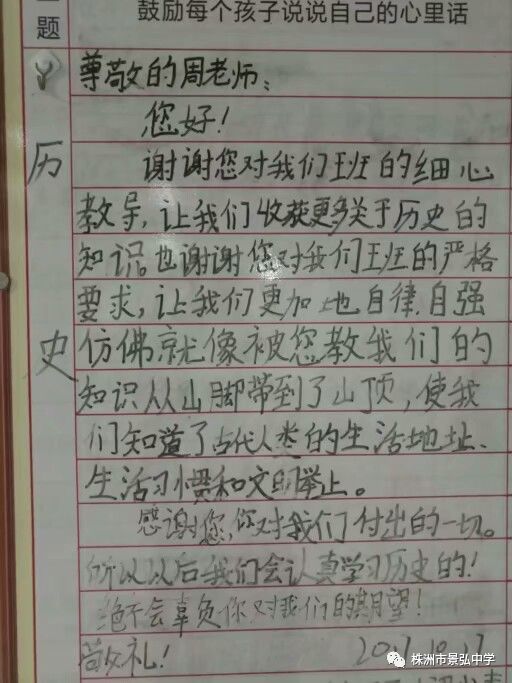 题
鼓励每个孩子说说自己的心里话
历史
尊敬的周老师：
您好！
谢谢您对我们班的细心
教导，让我们收获更多关于历史的
知识也谢谢您对我们班的严格
要求，让我们更加地自律.自强
仿佛就像被您教我们的
知识从山脚带到了山顶，使我
们知道了古代人类的生活地址、
生活习惯和文明举止。
感谢您，您对我们付出的一切。
所以以后我们会认真学习历史的！
绝不会辜负你对我们的期望！
敬礼！ 2017.10.17
株洲市景弘中学